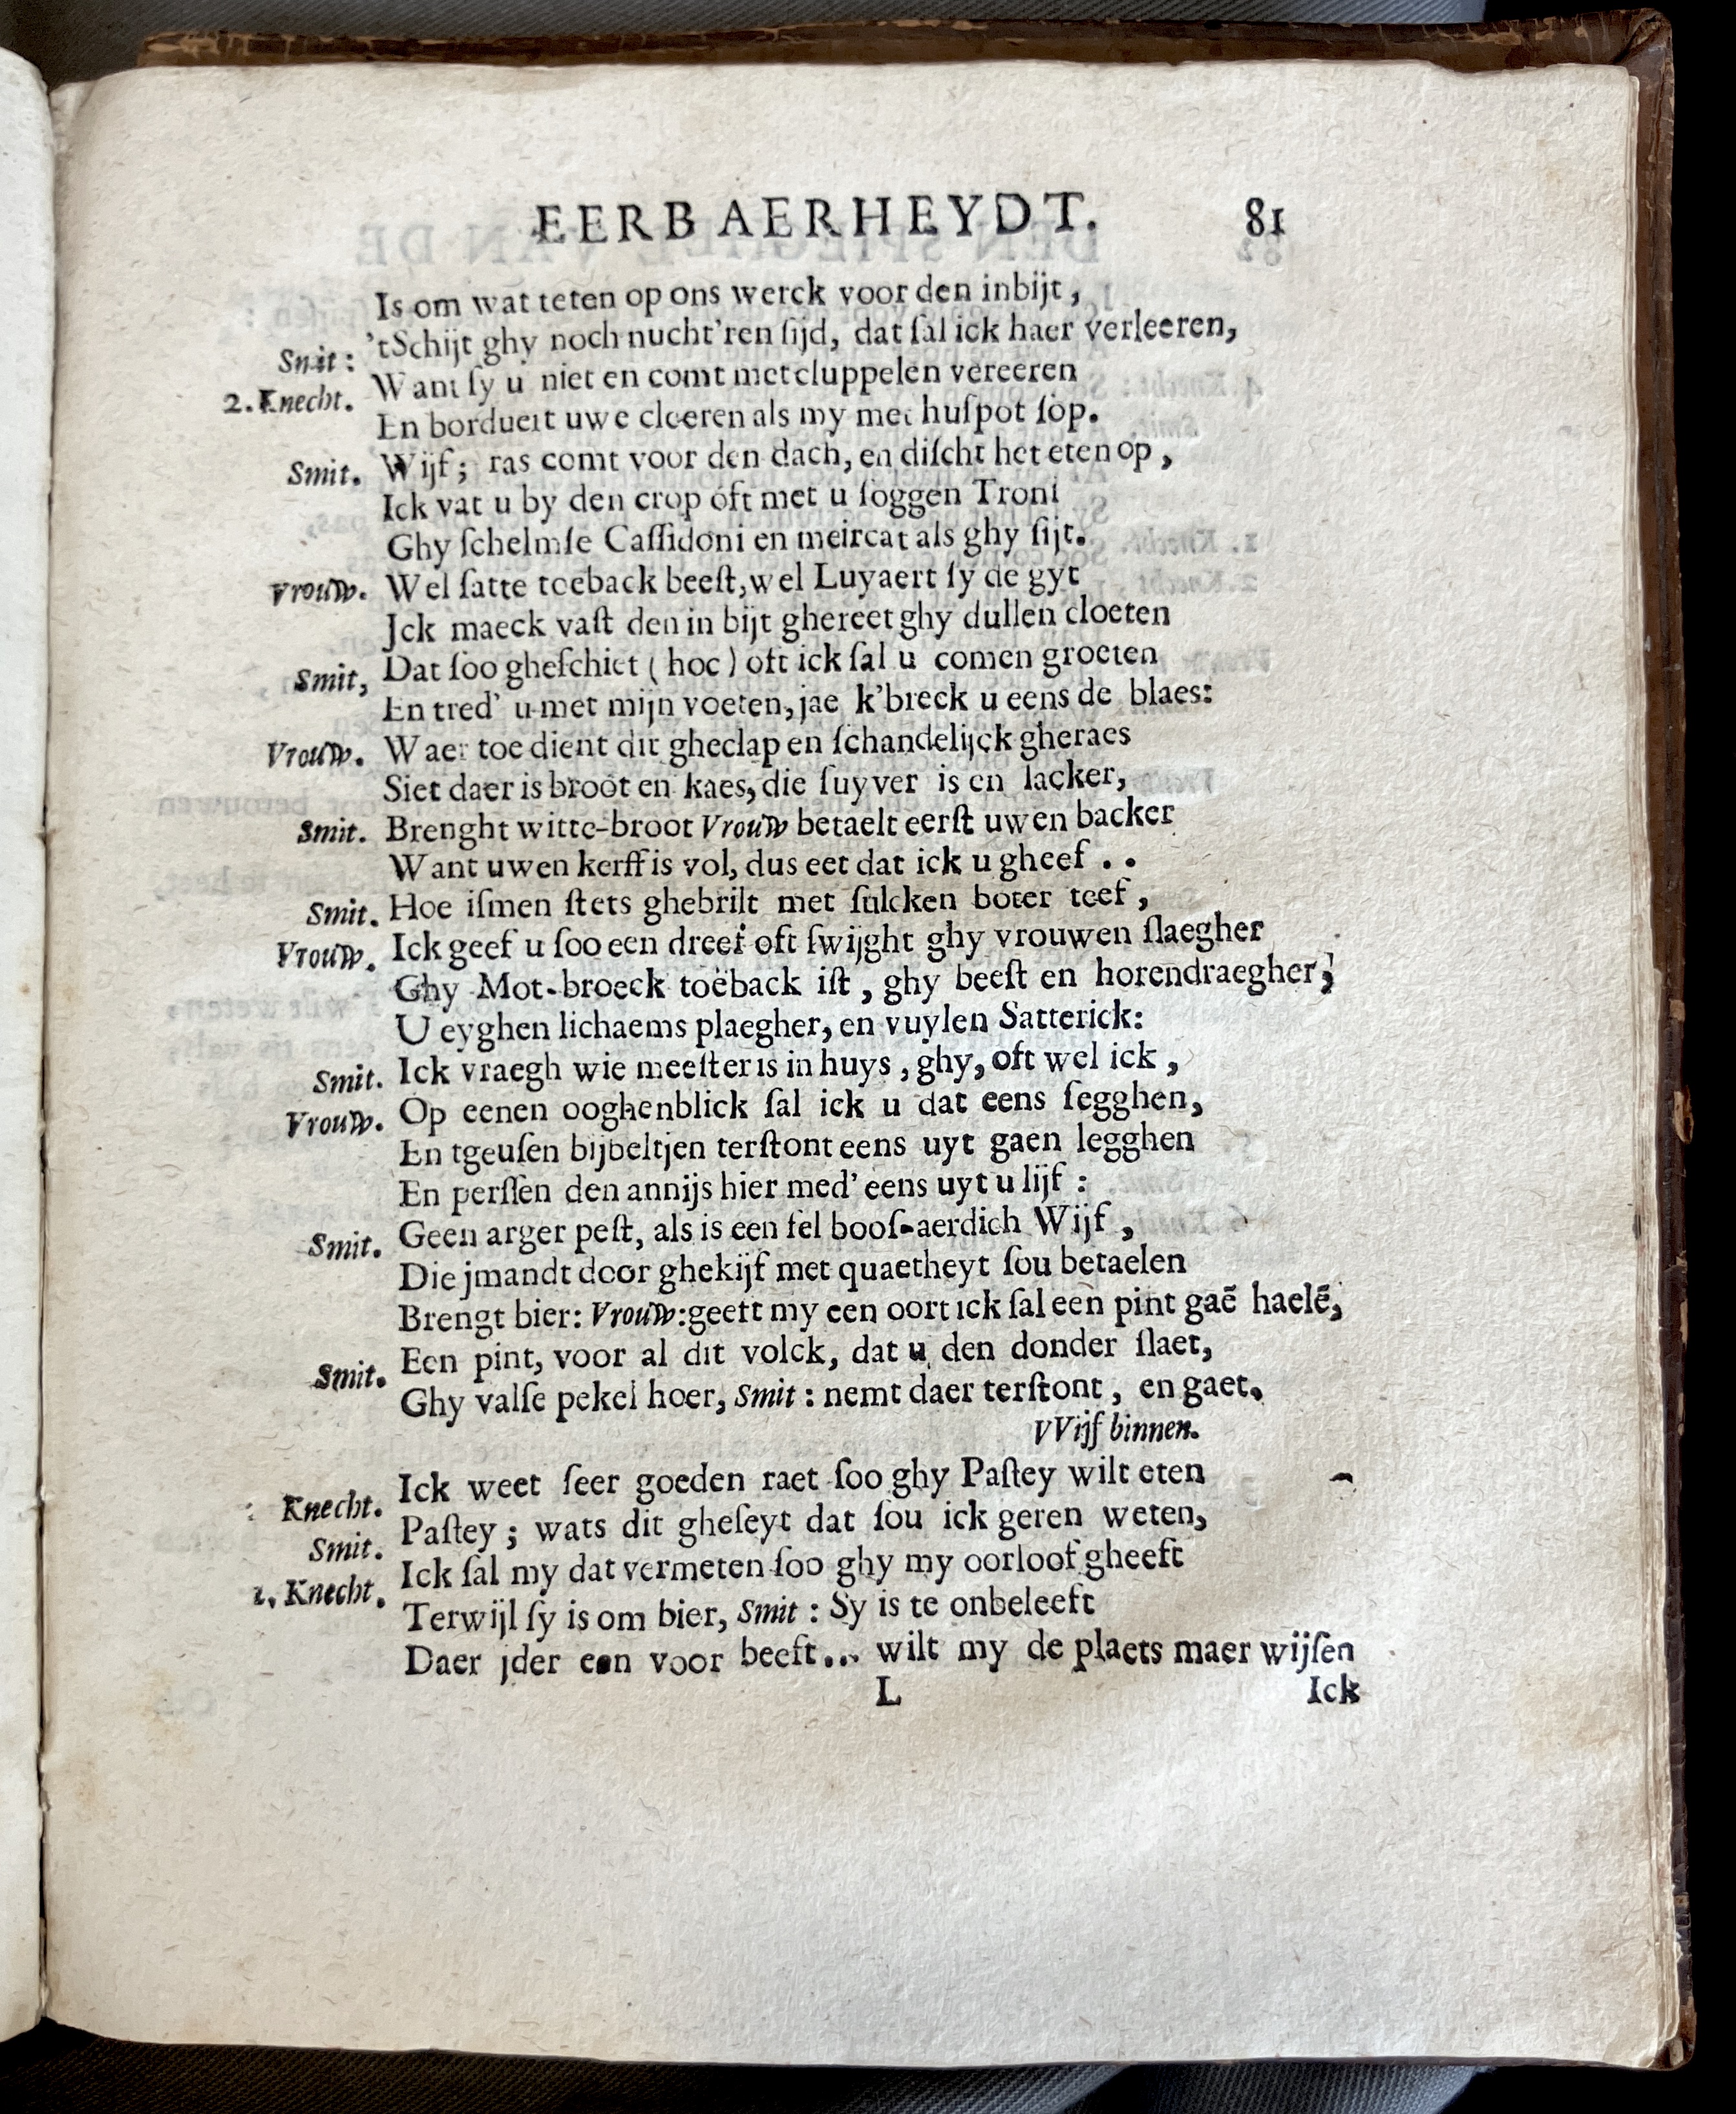 EERBAERHEYDT. 81
Is om wat teten op ons werck voor den inbijt,
Smit: 'tSchijt ghy noch nucht'ren ſijd, dat ſal ick haer verleeren,
2. Knecht. Want ſy u niet en comt met cluppelen vereeren
En bordueit uwe cleeren als my met huſpot ſop.
Smit. Wijf; ras comt voor den dach, en diſcht het eten op,
Ick vat u by den crop oft met u ſoggen Troni
Ghy ſchelmſe Caſſidoni en meircat als ghy ſijt.
Vrouw. Wel ſatte toeback beeſt, wel Luyaert ſy de gyt
Jck maeck vaſt den in bijt ghereet ghy dullen cloeten
Smit, Dat ſoo gheſchiet (hoc) oft ick ſal u comen groeten
En tred' u met mijn voeten, jae k'breck u eens de blaes:
Vrouw. Waer toe dient dit gheclap en ſchandelijck gheraes
Siet daer is broot en kaes, die ſuyver is en lacker,
Smit. Brenght witte-broot Vrouw betaelt eerſt uwen backer
Want uwen kerff is vol, dus eet dat ick u gheef . .
Smit. Hoe iſmen ſtets ghebrilt met ſulcken boter teef,
Vrouw. Ick geef u ſoo een dreef oft ſwijght ghy vrouwen ſlaegher
Ghy Mot-broeck toëback iſt, ghy beeſt en horendraegher;
U eyghen lichaems plaegher, en vuylen Satterick:
Smit. Ick vraegh wie meeſter is in huys, ghy, oft wel ick,
Vrouw. Op eenen ooghenblick ſal ick u dat eens ſegghen,
En tgeuſen bijbeltjen terſtont eens uyt gaen legghen
En perſſen den annijs hier med' eens uyt u lijf :
Smit. Geen arger peſt, als is een fel booſ-aerdich Wijf,
Die jmandt door ghekijf met quaetheyt ſou betaelen
Brengt bier: Vrouw: geeft my een oort ick ſal een pint gaē haelē,
Smit. Een pint, voor al dit volck, dat u den donder ſlaet,
Ghy valſe pekel hoer, Smit: nemt daer terſtont, en gaet.
VVijf binnen.
: Knecht. Ick weet ſeer goeden raet ſoo ghy Paſtey wilt eten
Smit. Paſtey; wats dit gheſeyt dat ſou ick geren weten,
1. Knecht. Ick ſal my dat vermeten ſoo ghy my oorloof gheeft
Terwijl ſy is om bier, Smit: Sy is te onbeleeft
Daer jder een voor beeft... wilt my de plaets maer wijſen
L Ick